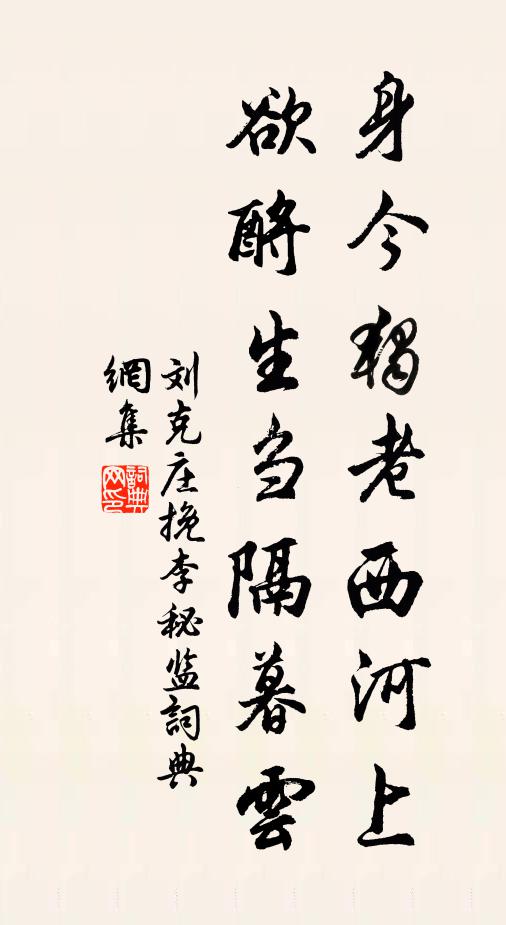 身今獨老西河上
欲酹生刍隔暮雲
刘克庄挽李秘监詞典
網集
詞典網印